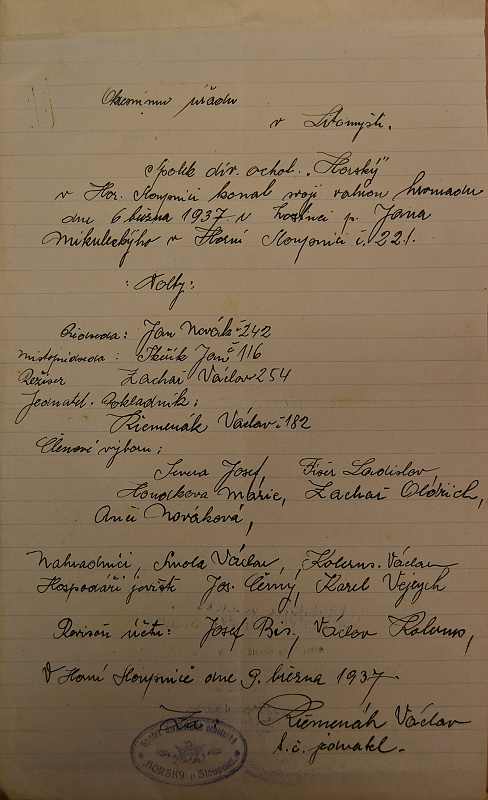 Okresnímu úřadu
v Litomyšli.
Spolek div. ochot. „Horský“
v Hor. Sloupnici konal svoji valnou hromadu
dne 6 března 1937 v hostinci p. Jana
Mikuleckýho v Horní Sloupnici č. 221.
: Volby :
Předseda : Jan Novák č 242
Místopředseda : Jan č 116
Režiser Zachař Václav 254
Jednatel. Pokladník :
Řemenák Václav č 182
Členové výboru :
Severa Josef, Fišer Ladislav,
Marie, Zachař Oldřich,
Anči Nováková,
Nahradníci, Smola Václav, Václav
Hospodáři jeviště Jos. Černý, Karel Vejrych
Revisoři účtů : Josef Václav
V Horní Sloupnici dne 9. března 1937.
Řemenák Václav
t. č. jednatel.
Spolek divadelních ochotníků
„HORSKÝ“ v Sloupnici